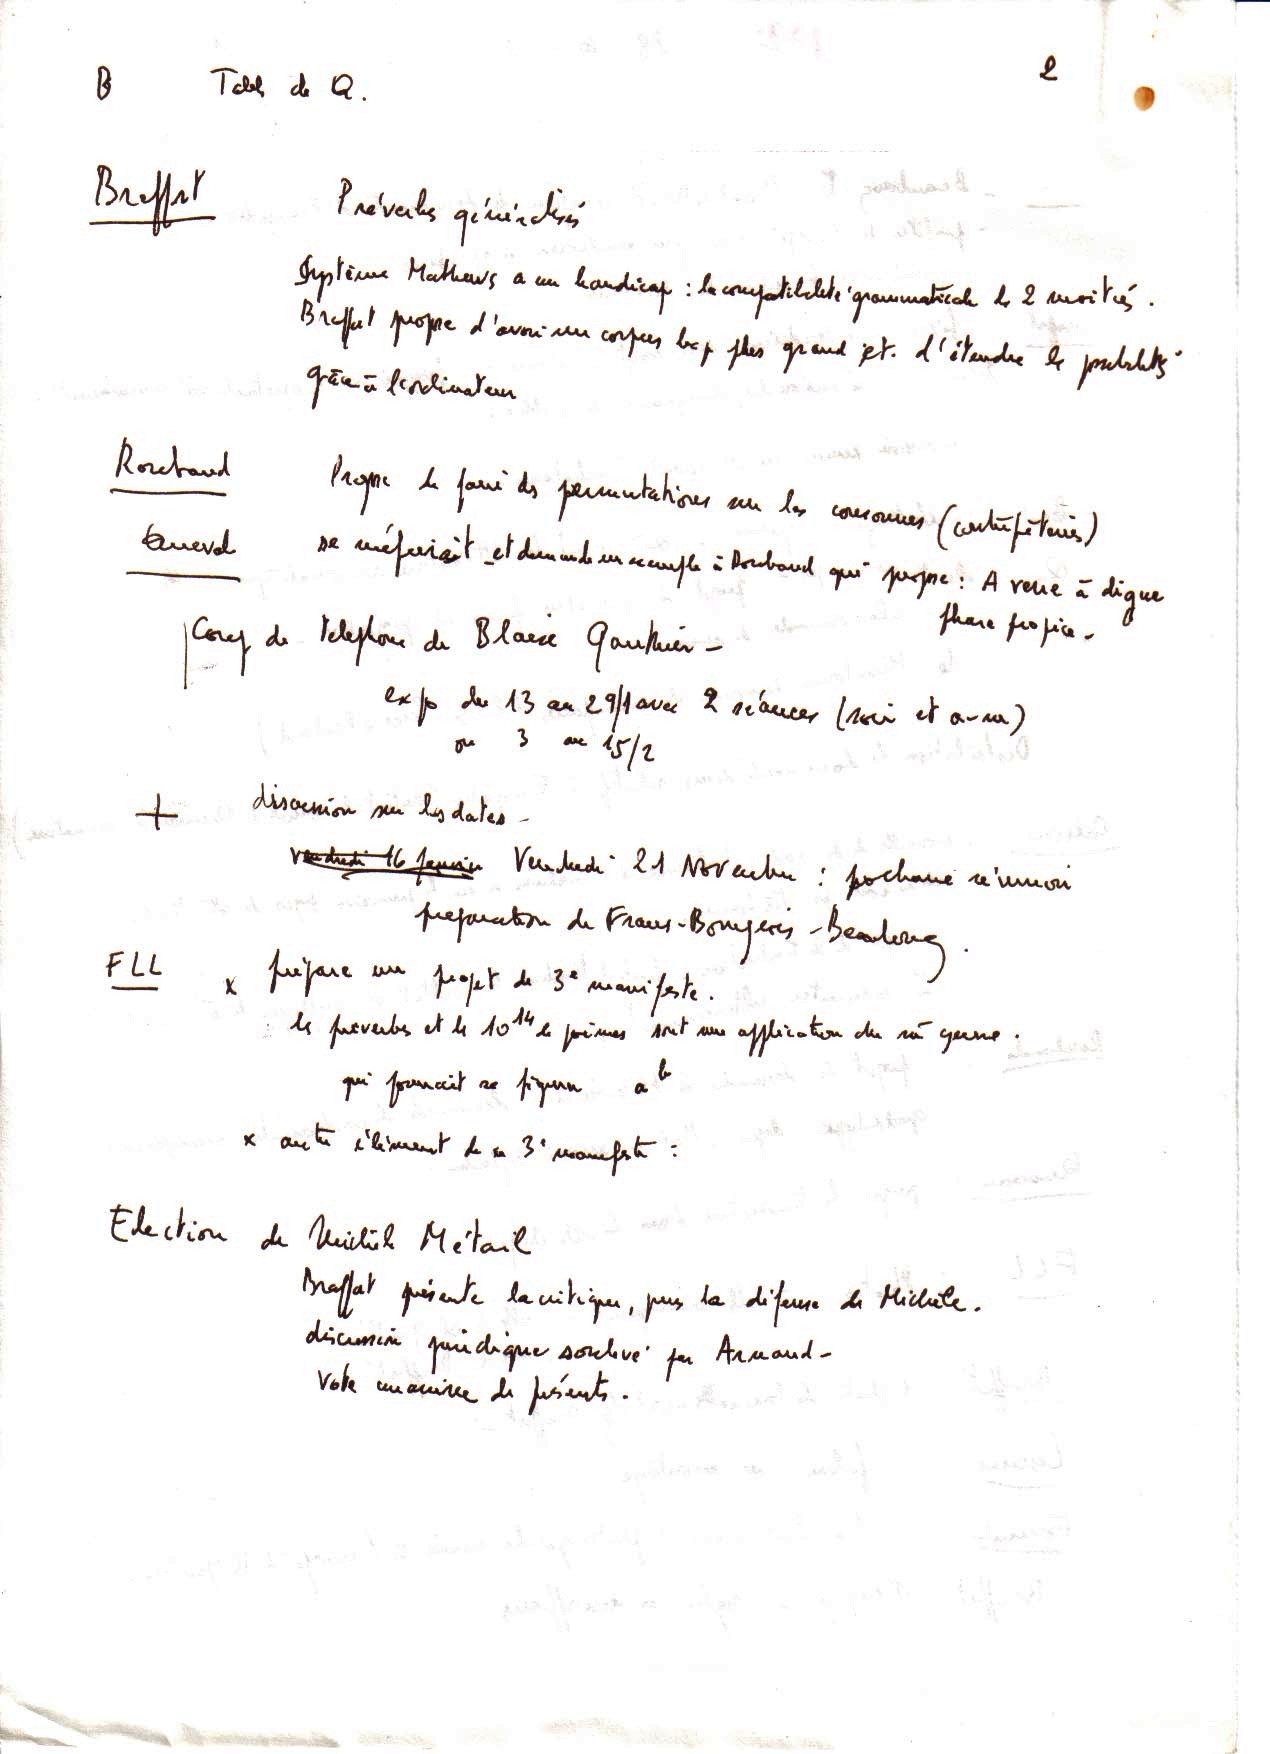 2
B Table de Q.
Braffort Proverbes généralisés
Système Mathews a un handicap : la compatibilité grammaticale des 2 moitiés.
Braffort propose d'avoir un corpus bcp plus grand et d'étendre les possibilités
grâce à l'ordinateur
Roubaud Propose de faire des permutations sur les consonnes (contrepèteries)
Queval se méfierait et demande un exemple à Roubaud qui propose : A verre à digue
phare propice -
Coup de téléphone de Blaise Gauthier -
expo du 13 au 29/1 avec 2 séances (soir et a-m)
ou 3 au 15/2
+ discussion sur les dates -
vendredi 16 janvier Vendredi 21 Novembre : prochaine réunion
préparation de Francs-Bourgeois - Beaubourg.
FLL x prépare un projet de 3e manifeste.
les proverbes et les 10^14 poèmes sont une application du m̂ genre.
qui pourrait se figurer a^b
x autre élément de ce 3e manifeste :
Election de Michèle Métail
Braffort présente la critique, puis la défense de Michèle.
discussion juridique soulevé par Arnaud -
Vote unanime des présents.